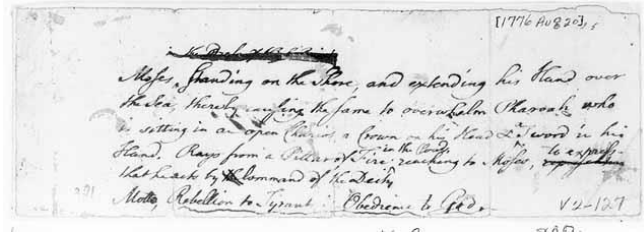 [1776 Au 20]
Moses, standing on the Shore, and extending his Hand over
the Sea, thereby causing the same to overwhelm Pharoah who
is sitting in an open Chariot a Crown on his Head & a Sword in his
Hand. Rays from a Pillar of Fire in the Clouds reaching to Moses, to express
that he acts by Command of the Deity
Motto, Rebellion to Tyrants is Obedience to God.
V2-127